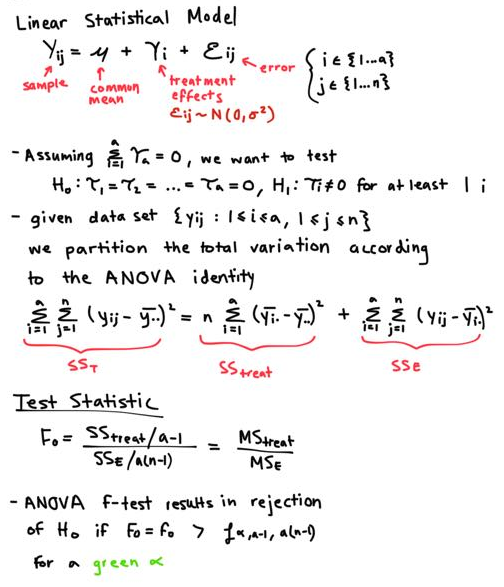 Linear Statistical Model
Yij = μ + τi + εij ← error { i ∈ {1...a}
j ∈ {1...n}
sample common mean treatment effects
εij ~ N(0,σ²)
- Assuming Σ_{i=1}^{a} τa = 0, we want to test
H₀: τ₁ = τ₂ = ... = τa = 0, H₁: τi ≠ 0 for at least 1 i
- given data set {yij : 1 ≤ i ≤ a, 1 ≤ j ≤ n}
we partition the total variation according
to the ANOVA identity
Σ_{i=1}^{a} Σ_{j=1}^{n} (yij - ȳ..)² = n Σ_{i=1}^{a} (ȳi. - ȳ..)² + Σ_{i=1}^{a} Σ_{j=1}^{n} (yij - ȳi.)²
SST SStreat SSE
Test Statistic
F₀ = (SStreat/a-1) / (SSE/a(n-1)) = MStreat / MSE
- ANOVA f-test results in rejection
of H₀ if F₀ = f₀ > fα,a-1,a(n-1)
for a green α